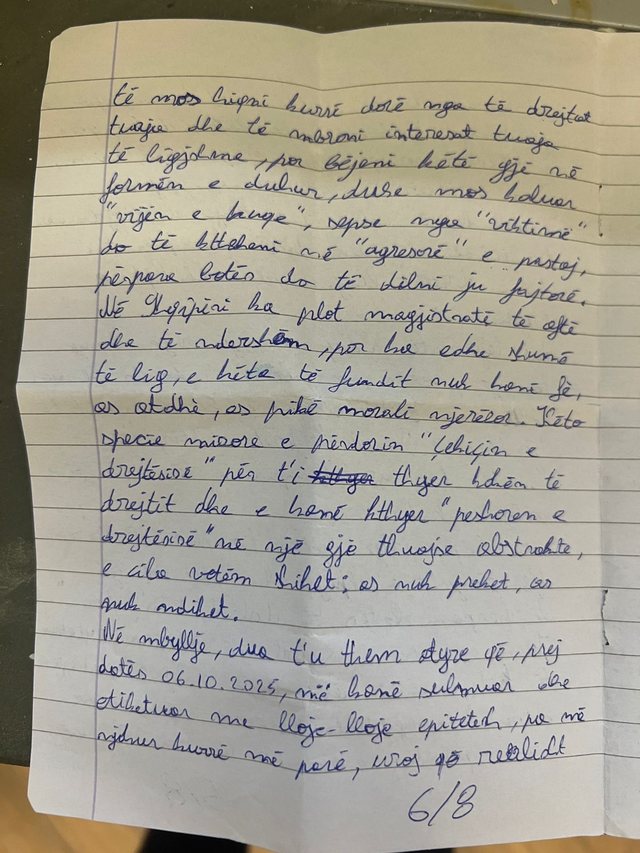 të mos hiqni kurrë dorë nga të drejtat
tuaja dhe të mbroni interesat tuaja
të ligjshme, por bëjeni këtë gjë në
formën e duhur, duke mos kaluar
"vijën e kuqe", sepse nga "viktimë"
do të ktheheni në "agresorë" e pastaj,
përpara botës do të dilni ju fajtorë.
Në Shqipëri ka plot magjistratë të aftë
dhe të ndershëm, por ka edhe shumë
të lig, e këta të fundit nuk kanë fé,
as atdhè, as pikë morali njerëzor. Këto
specie mizore e përdorin "Çekiçin e
drejtësisë" për t'i thyer kokën të
drejtit dhe e kanë kthyer "peshoren e
drejtësisë" në një gjë thuajse abstrakte,
e cila vetëm shihet; as nuk preket, as
nuk ndihet.
Në mbyllje, dua t'u them atyre që, prej
datës 06.10.2025, më kanë sulmuar dhe
etiketuar me lloje-lloje epitetesh, pa më
njohur kurrë më parë, uroj që realisht
6/8